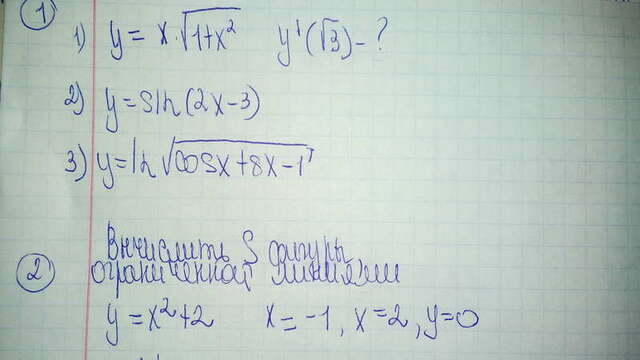 1
1) y = x·√(1+x²) y'(√3) - ?
2) y = sin(2x-3)
3) y = ln√(cosx+8x-1)
2 Вычислить S фигуры
ограниченной линиями
y = x²+2 x = -1, x=2, y=0